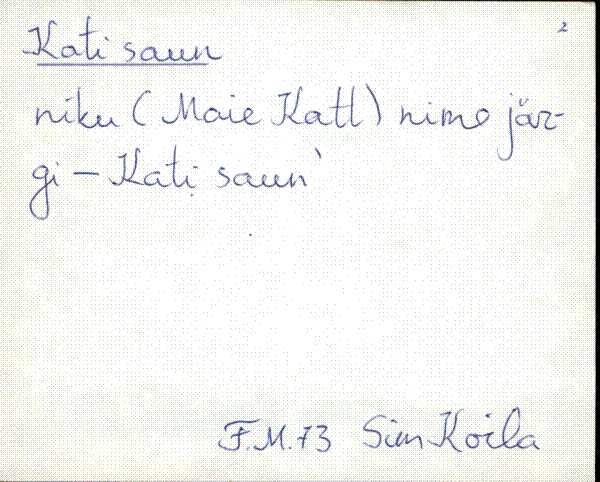 2
Kati saun
niku (Maie Katt) nime jär-
gi - Kati saun'
F.M. 73 Siim Koila